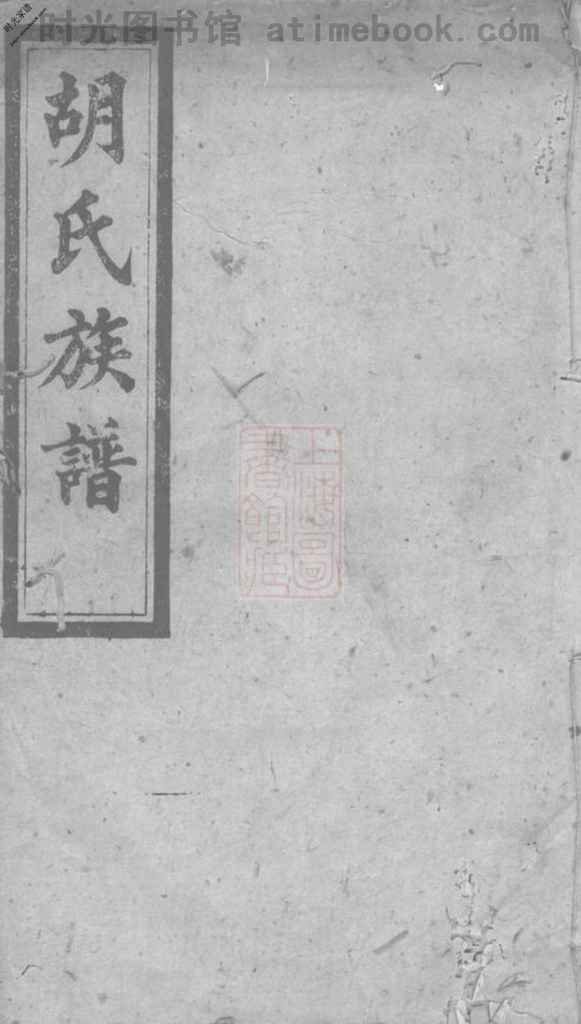 时光图书馆 atimebook.com
胡氏族譜
上海圖
書館藏